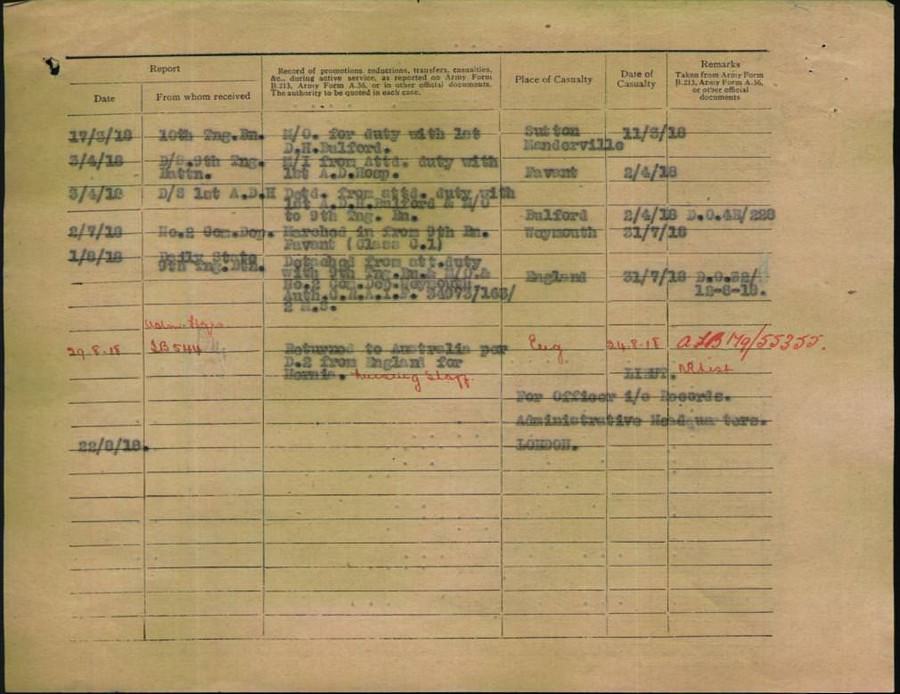 Report
Record of promotions, reductions, transfers, casualties,
&c., during active service, as reported on Army Form
B.213, Army Form A.36, or in other official documents.
The authority to be quoted in each case.
Place of Casualty
Date of
Casualty
Remarks
Taken from Army Form
B.213, Army Form A.36,
or other official
documents
Date
From whom received
17/3/18 10th Tng.Bn. M/O. for duty with 1st Sutton 11/3/18
D.H.Bulford. Manderville
3/4/18 D/S.9th Tng. M/I from Attd. duty with
Battn. 1st A.D.Hosp. Fovant 2/4/18
3/4/18 D/S 1st A.D.H Detd. from attd. duty with
1st A.D.H.Bulford & M/O
to 9th Tng. Bn. Bulford 2/4/18 D.O.4E/228
2/7/18 No.2 Com.Dep. Marched in from 9th Bn. Weymouth 31/7/18
Fovant (Class C.1)
1/8/18 Daily State Detached from att.duty
9th Tng.Btn. with 9th Tng.Bn.& M/O.& England 31/7/18 D.O.32/
No.2 Com.Dep.Weymouth 12-8-18.
Auth.C.R.A.I.F. 34973/163/
2 M.S.
Adm. Hqrs
29.8.18 LB544 Returned to Australia per Eng 24.8.18 ALB Mg/55355.
D.2 from England for
Hernia. Nursing Staff. LIEUT.
For Officer i/c Records.
Administrative Headquarters.
22/8/18. LONDON.